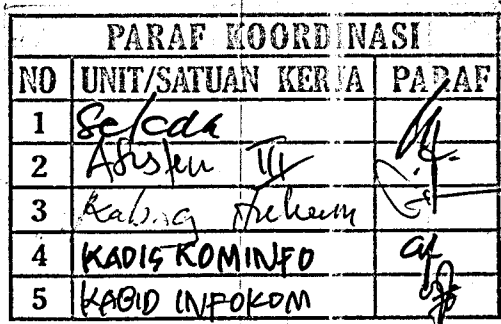 PARAF KOORDINASI
NO UNIT/SATUAN KERJA PARAF
1 Sekda
2 Asisten III
3 Kabag Hukum
4 KADIS KOMINFO
5 KABID INFOKOM